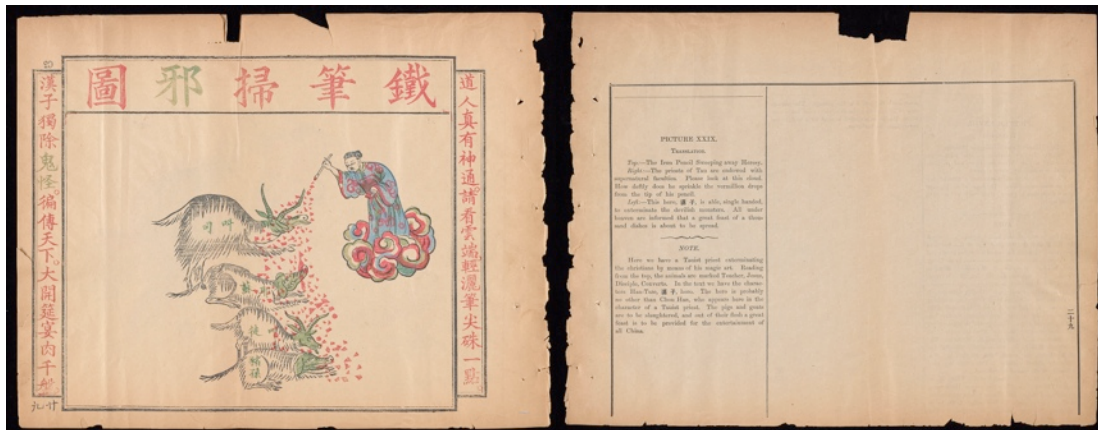 鐵筆掃邪圖
道人真有神通請看雲端輕灑筆尖硃一點
漢子獨除鬼怪徧傳天下大開筵宴肉千
叫司
徒
猪猱
PICTURE XXIX.
Translation.
Top:—The Iron Pencil Sweeping away Heresy.
Right:—The priests of Tao are endowed with
supernatural faculties. Please look at this cloud.
How deftly does he sprinkle the vermillion drops
from the tip of his pencil.
Left:—This hero, 漢子, is able, single handed,
to exterminate the devilish monsters. All under
heaven are informed that a great feast of a thou-
sand dishes is about to be spread.
NOTE.
Here we have a Taoist priest exterminating
the christians by means of his magic art. Reading
from the top, the animals are marked Teacher, Jesus,
Disciple, Converts. In the text we have the charac-
ters Han-Tsze, 漢子, hero. The hero is probably
no other than Chou Han, who appears here in the
character of a Taoist priest. The pigs and goats
are to be slaughtered, and out of their flesh a great
feast is to be provided for the entertainment of
all China.
二十九